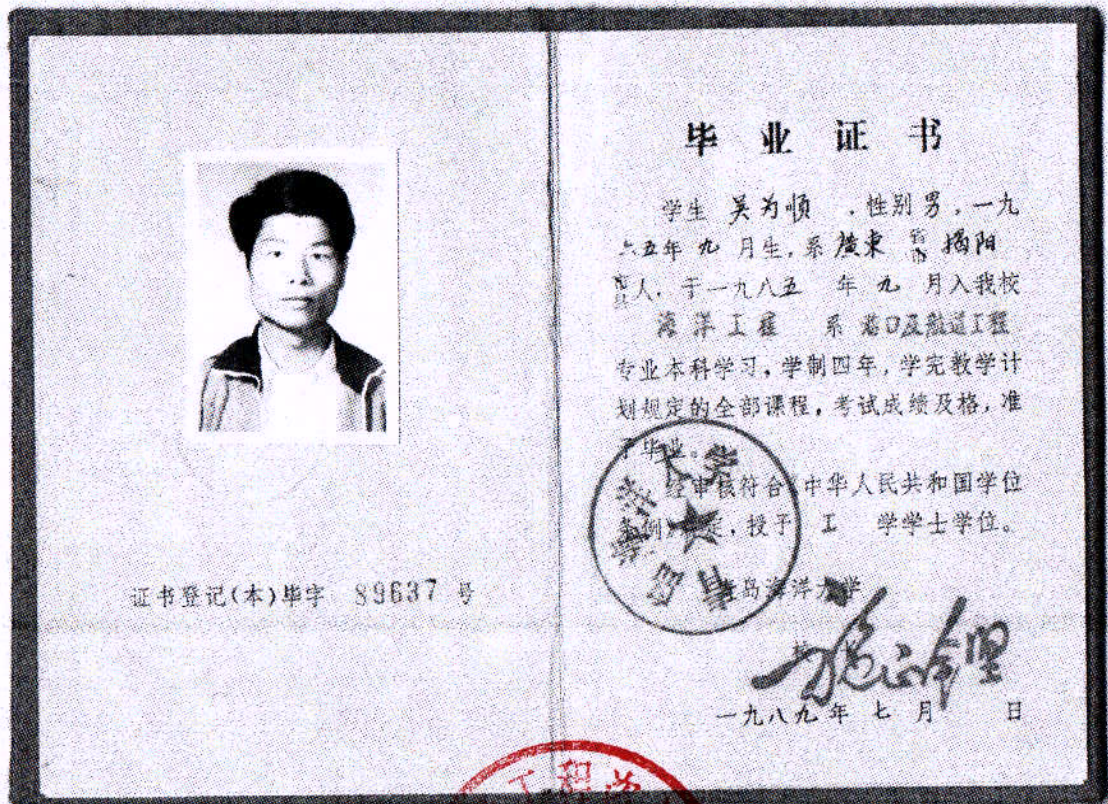 证书登记(本)毕字 89637 号
毕业证书
学生 吴为顺 ,性别男,一九
六五年九月生,系广东省市揭阳
市县人,于一九八五年九月入我校
海洋工程系港口及航道工程
专业本科学习,学制四年,学完教学计
划规定的全部课程,考试成绩及格,准
予毕业。
经审核符合《中华人民共和国学位
条例》规定,授予工学学士学位。
青岛海洋大学
校
施正铿
一九八九年七月 日
青岛海洋大学
工程